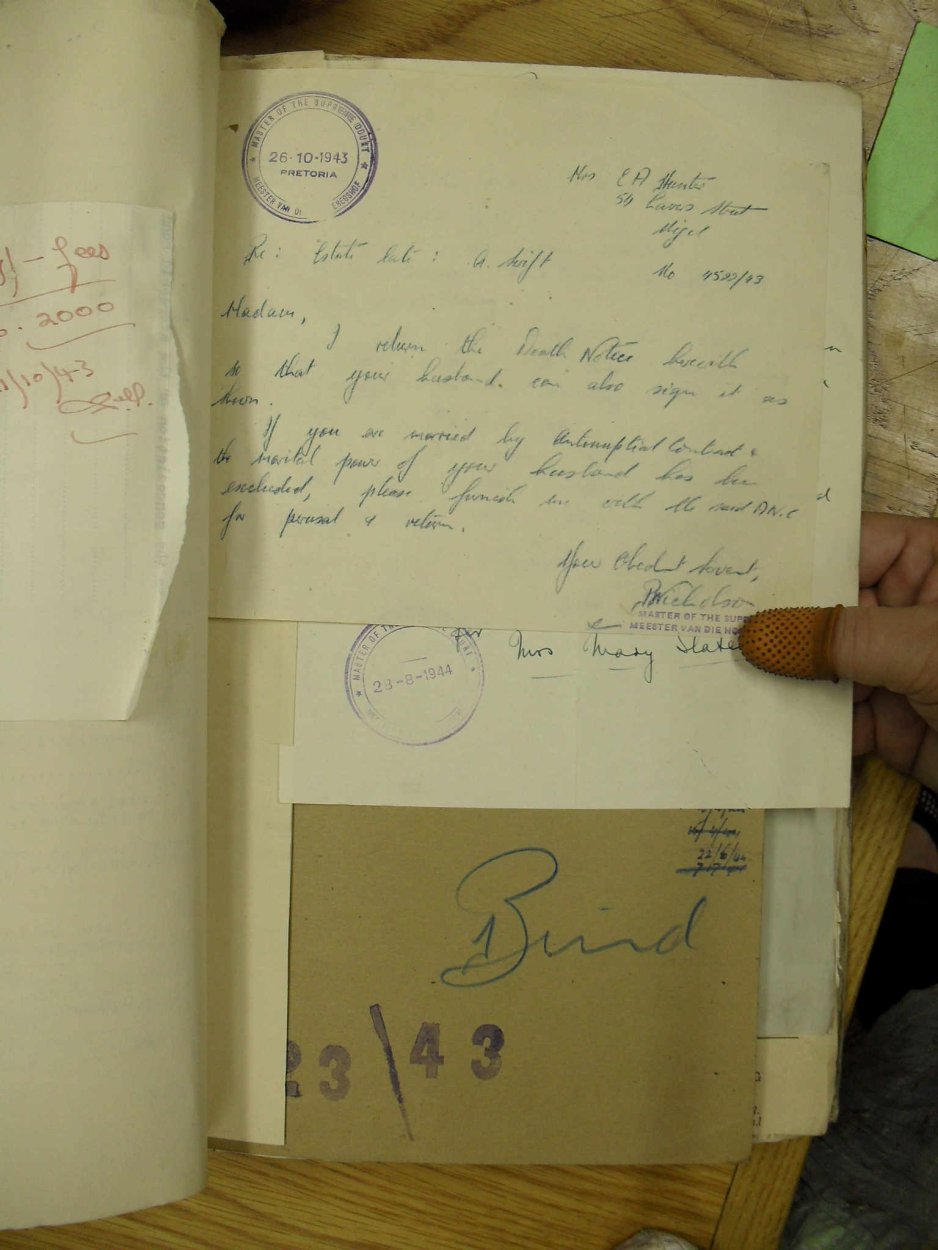 MASTER OF THE SUPREME COURT
26·10-1943
PRETORIA
MEESTER VAN DI
Mrs E A Hunter
Street
Nigel
Re: Estate late: G. Swift
No 4523/43
Madam,
I return the Death Notice herewith
so that your husband. can also sign it as
shown.
If you are married by Antenuptial Contract &
the marital power of your husband has been
excluded, please furnish me with the said A.N.C
for perusal & return.
Your Obedient Servant,
Nicholson
MASTER OF THE SUPR
MEESTER VAN DIE HO
Mrs Mary
MASTER OF
23-8-1944
22/6/44
Bind
23/43
- fees
2000
/10/43